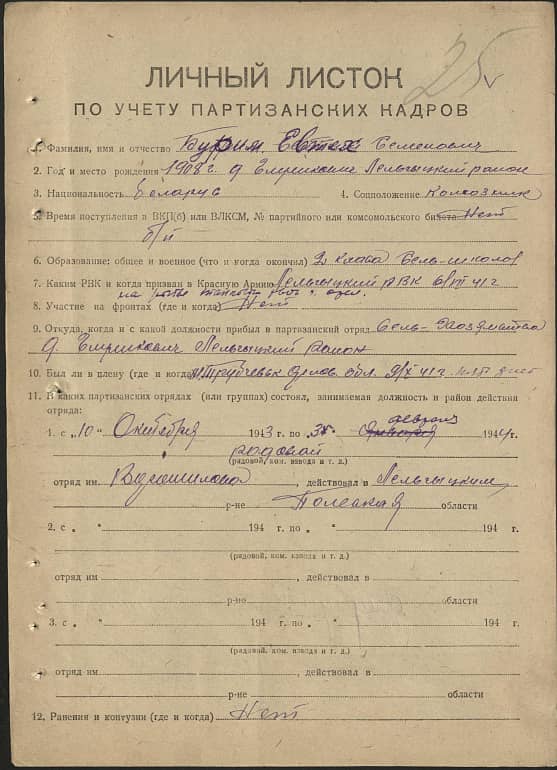 25
ЛИЧНЫЙ ЛИСТОК
ПО УЧЕТУ ПАРТИЗАНСКИХ КАДРОВ
1. Фамилия, имя и отчество Бурим Евтех Семенович
2. Год и место рождения 1908 г. д. Лельчицкий район
3. Национальность Беларус 4. Соцположение Колхозник
5. Время поступления в ВКП(б) или ВЛКСМ, № партийного или комсомольского билета Нет
б/п
6. Образование: общее и военное (что и когда окончил) 2 класса Сель-школы
7. Каким РВК и когда призван в Красную Армию Лельчицкий РВК 41 г
8. Участие на фронтах (где и когда) Нет
9. Откуда, когда и с какой должности прибыл в партизанский отряд Сель-
д. Лельчицкий район
10. Был ли в плену (где и когда) обл. 41 г.
11. В каких партизанских отрядах (или группах) состоял, занимаемая должность и район действия
отряда:
февраля
1. с "10" Октября 1943 г. по 1944 г.
рядовой
(рядовой, ком. взвода и т. д.)
отряд им Ворошилова, действовал в Лельчицким
р-не Полеская области
2. с " " 194 г. по " " 194 г.
(рядовой, ком. взвода и т. д.)
отряд им , действовал в
р-но области
3. с " " 194 г. по " " 194 г.
(рядовой, ком. взвода и т. д.)
отряд им , действовал в
р-не области
12. Ранения и контузии (где и когда) Нет